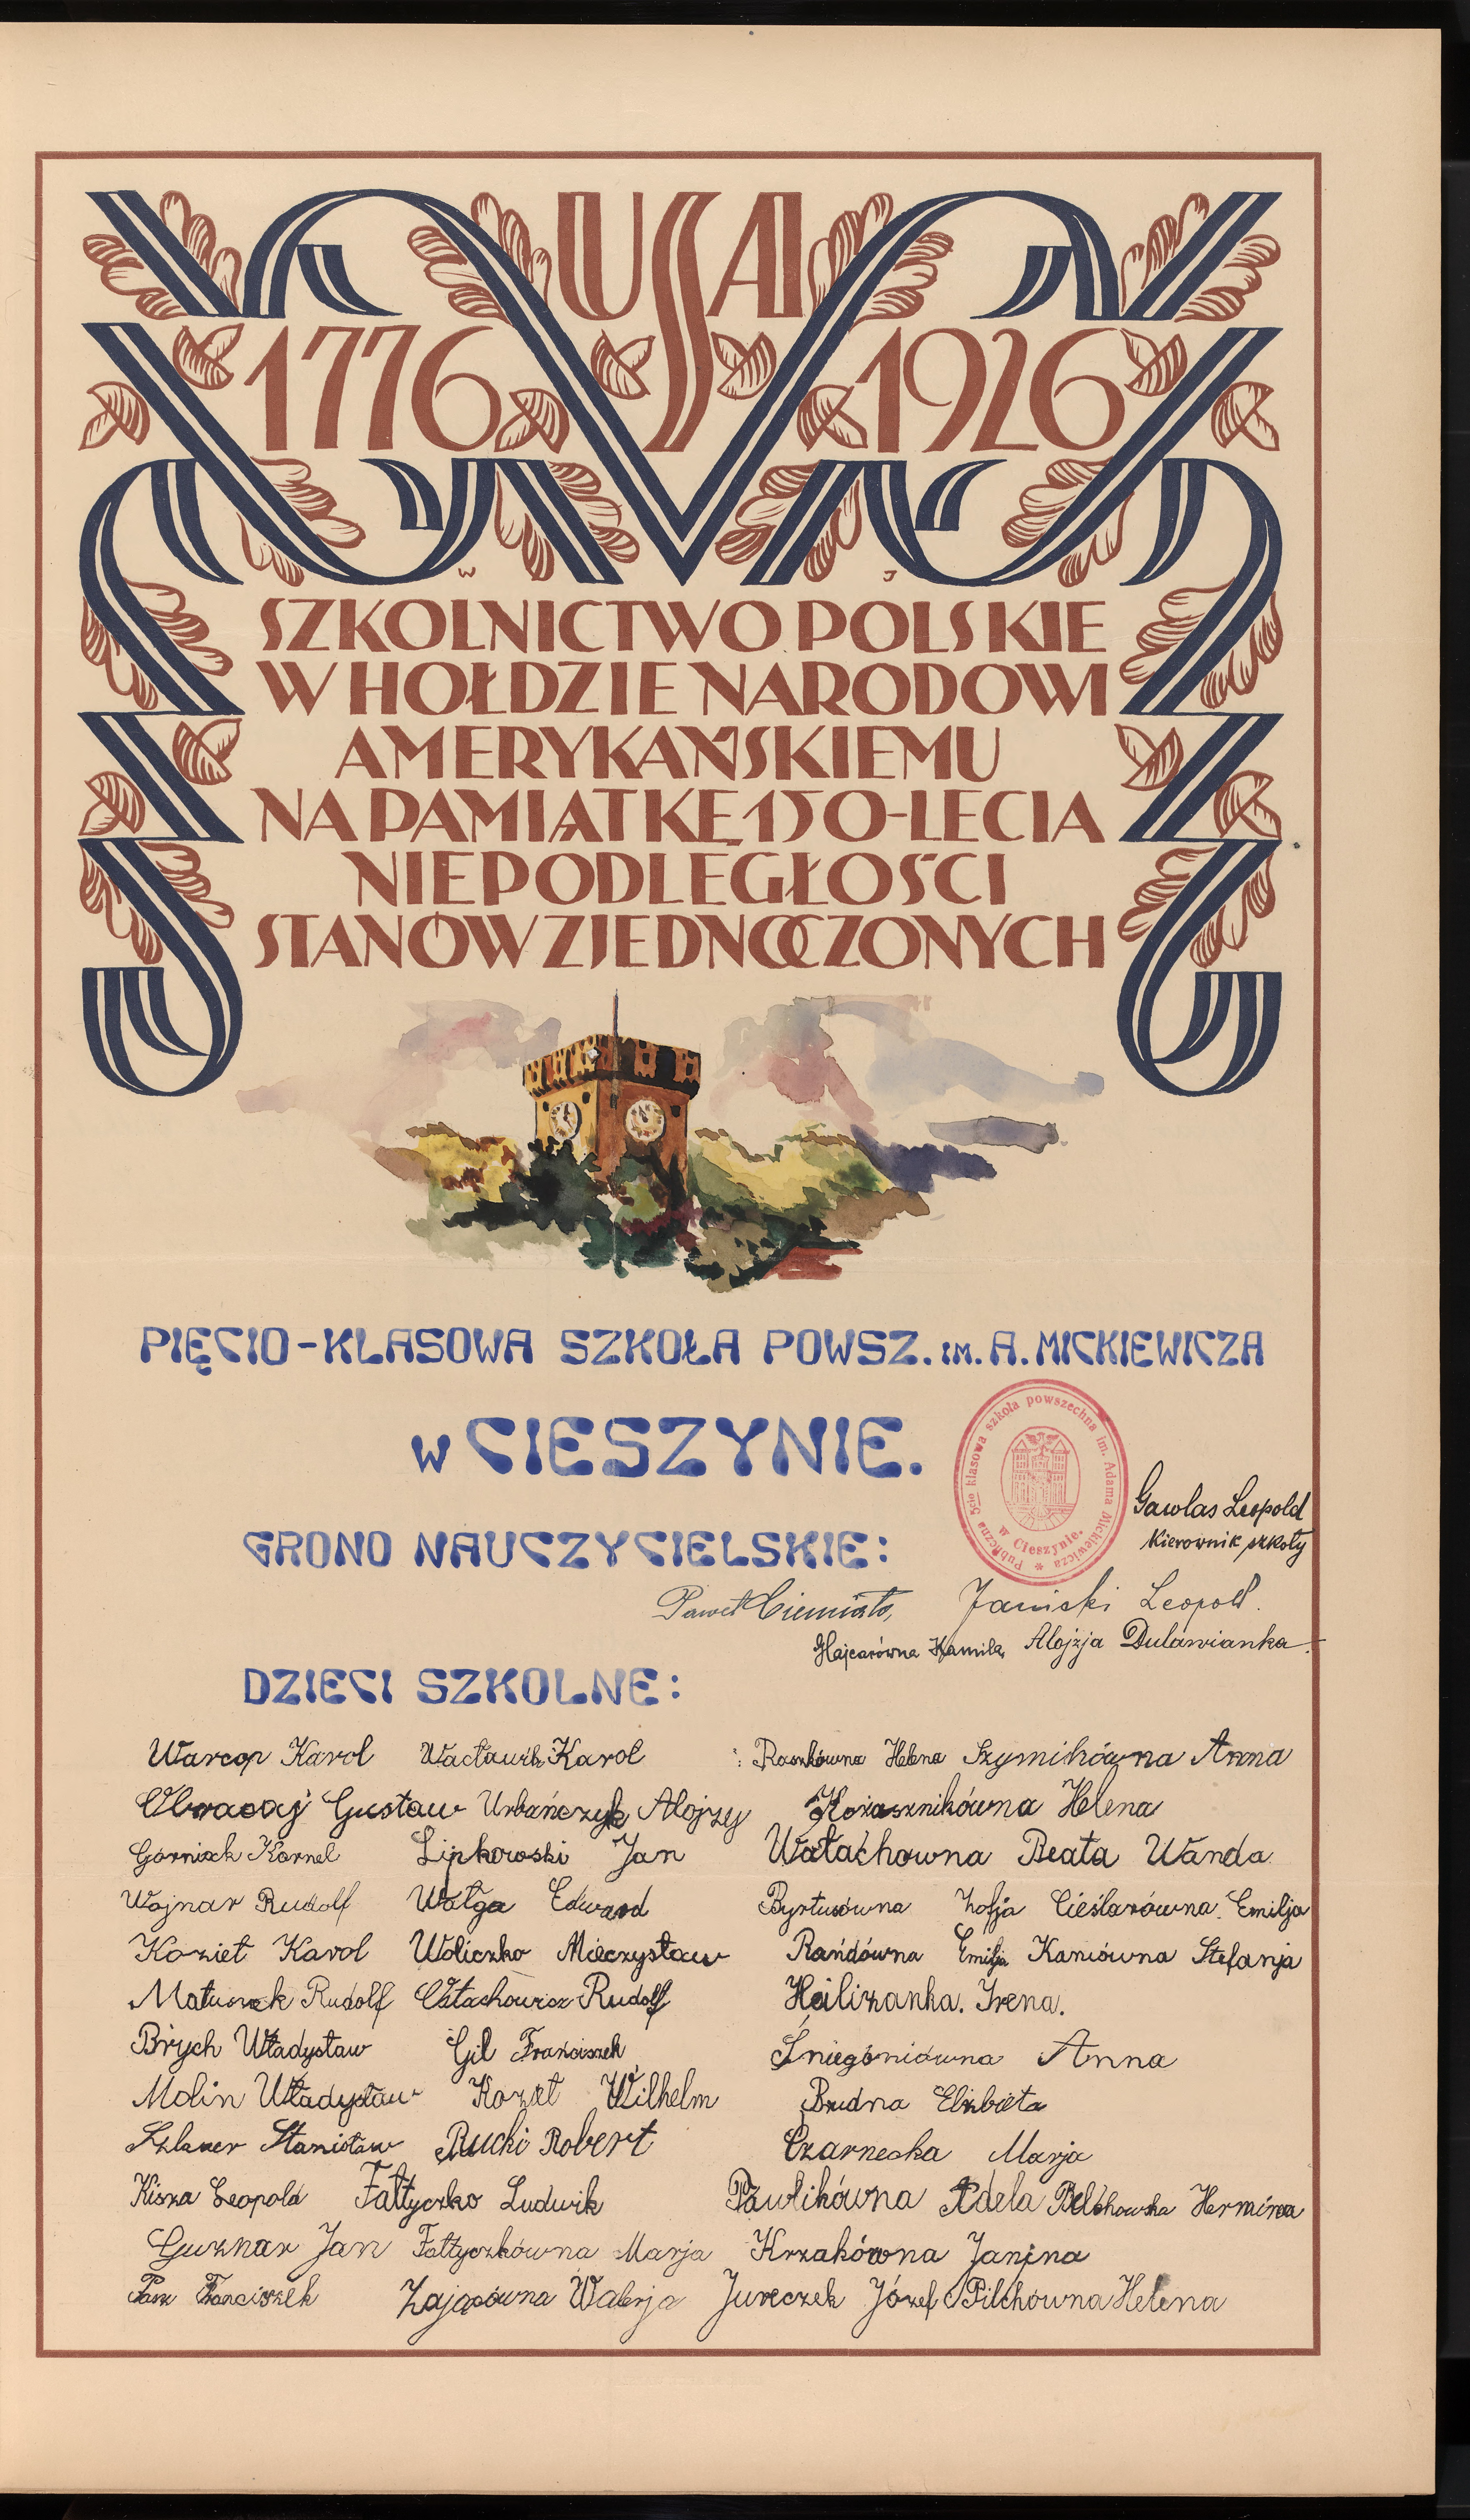 USA
1776 1926
W J
SZKOLNICTWO POLSKIE
W HOŁDZIE NARODOWI
AMERYKAŃSKIEMU
NA PAMIĄTKĘ 150-LECIA
NIEPODLEGŁOŚCI
STANÓW ZJEDNOCZONYCH
PIĘCIO-KLASOWA SZKOŁA POWSZ. IM. A. MICKIEWICZA
W CIESZYNIE.
Publiczna 5cio klasowa szkoła powszechna im. Adama Mickiewicza
w Cieszynie.
Gawlas Leopold
Kierownik szkoły
GRONO NAUCZYCIELSKIE:
Paweł Ciemiała, Janicki Leopold.
Hajcarówna Kamila, Alojzja Dulawianka.
DZIECI SZKOLNE:
Warcop Karol Wacławik Karol Raszkówna Helena Szymikówna Anna
Obracaj Gustaw Urbańczyk Alojzy Kożusznikówna Helena
Górniak Kornel Lipkowski Jan Wałachowna Beata Wanda
Wojnar Rudolf Wałga Edward Byrtusówna Zofja Cieślarówna Emilja
Kozieł Karol Woliczko Mieczysław Rańdówna Emilja Kaniówna Stefanja
Matuszek Rudolf Rudolf Heilizanka. Irena.
Brych Władysław Gil Franciszek Śniegoniówna Anna
Molin Władysław Kozeł Wilhelm Brudna Elżbieta
Szlauer Stanisław Rucki Robert Czarnecka Marja
Kisza Leopold Fałtyczko Ludwik Pawlikówna Adela Bełchowska Hermina
Guznar Jan Fałtyczkówna Marja Krzakówna Janina
Pasz Franciszek Zającówna Walerja Jureczek Józef Pilchówna Helena